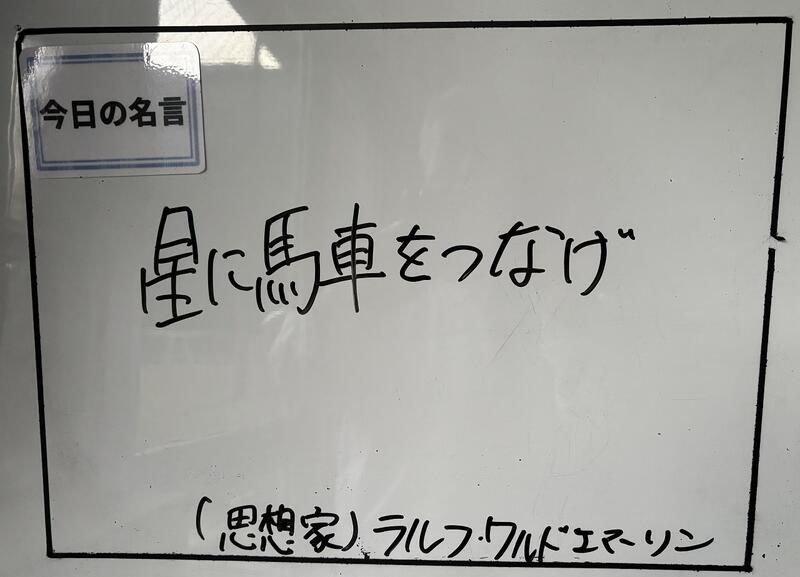 今日の名言
星に馬車をつなげ
(思想家)ラルフ・ワルドエマーソン